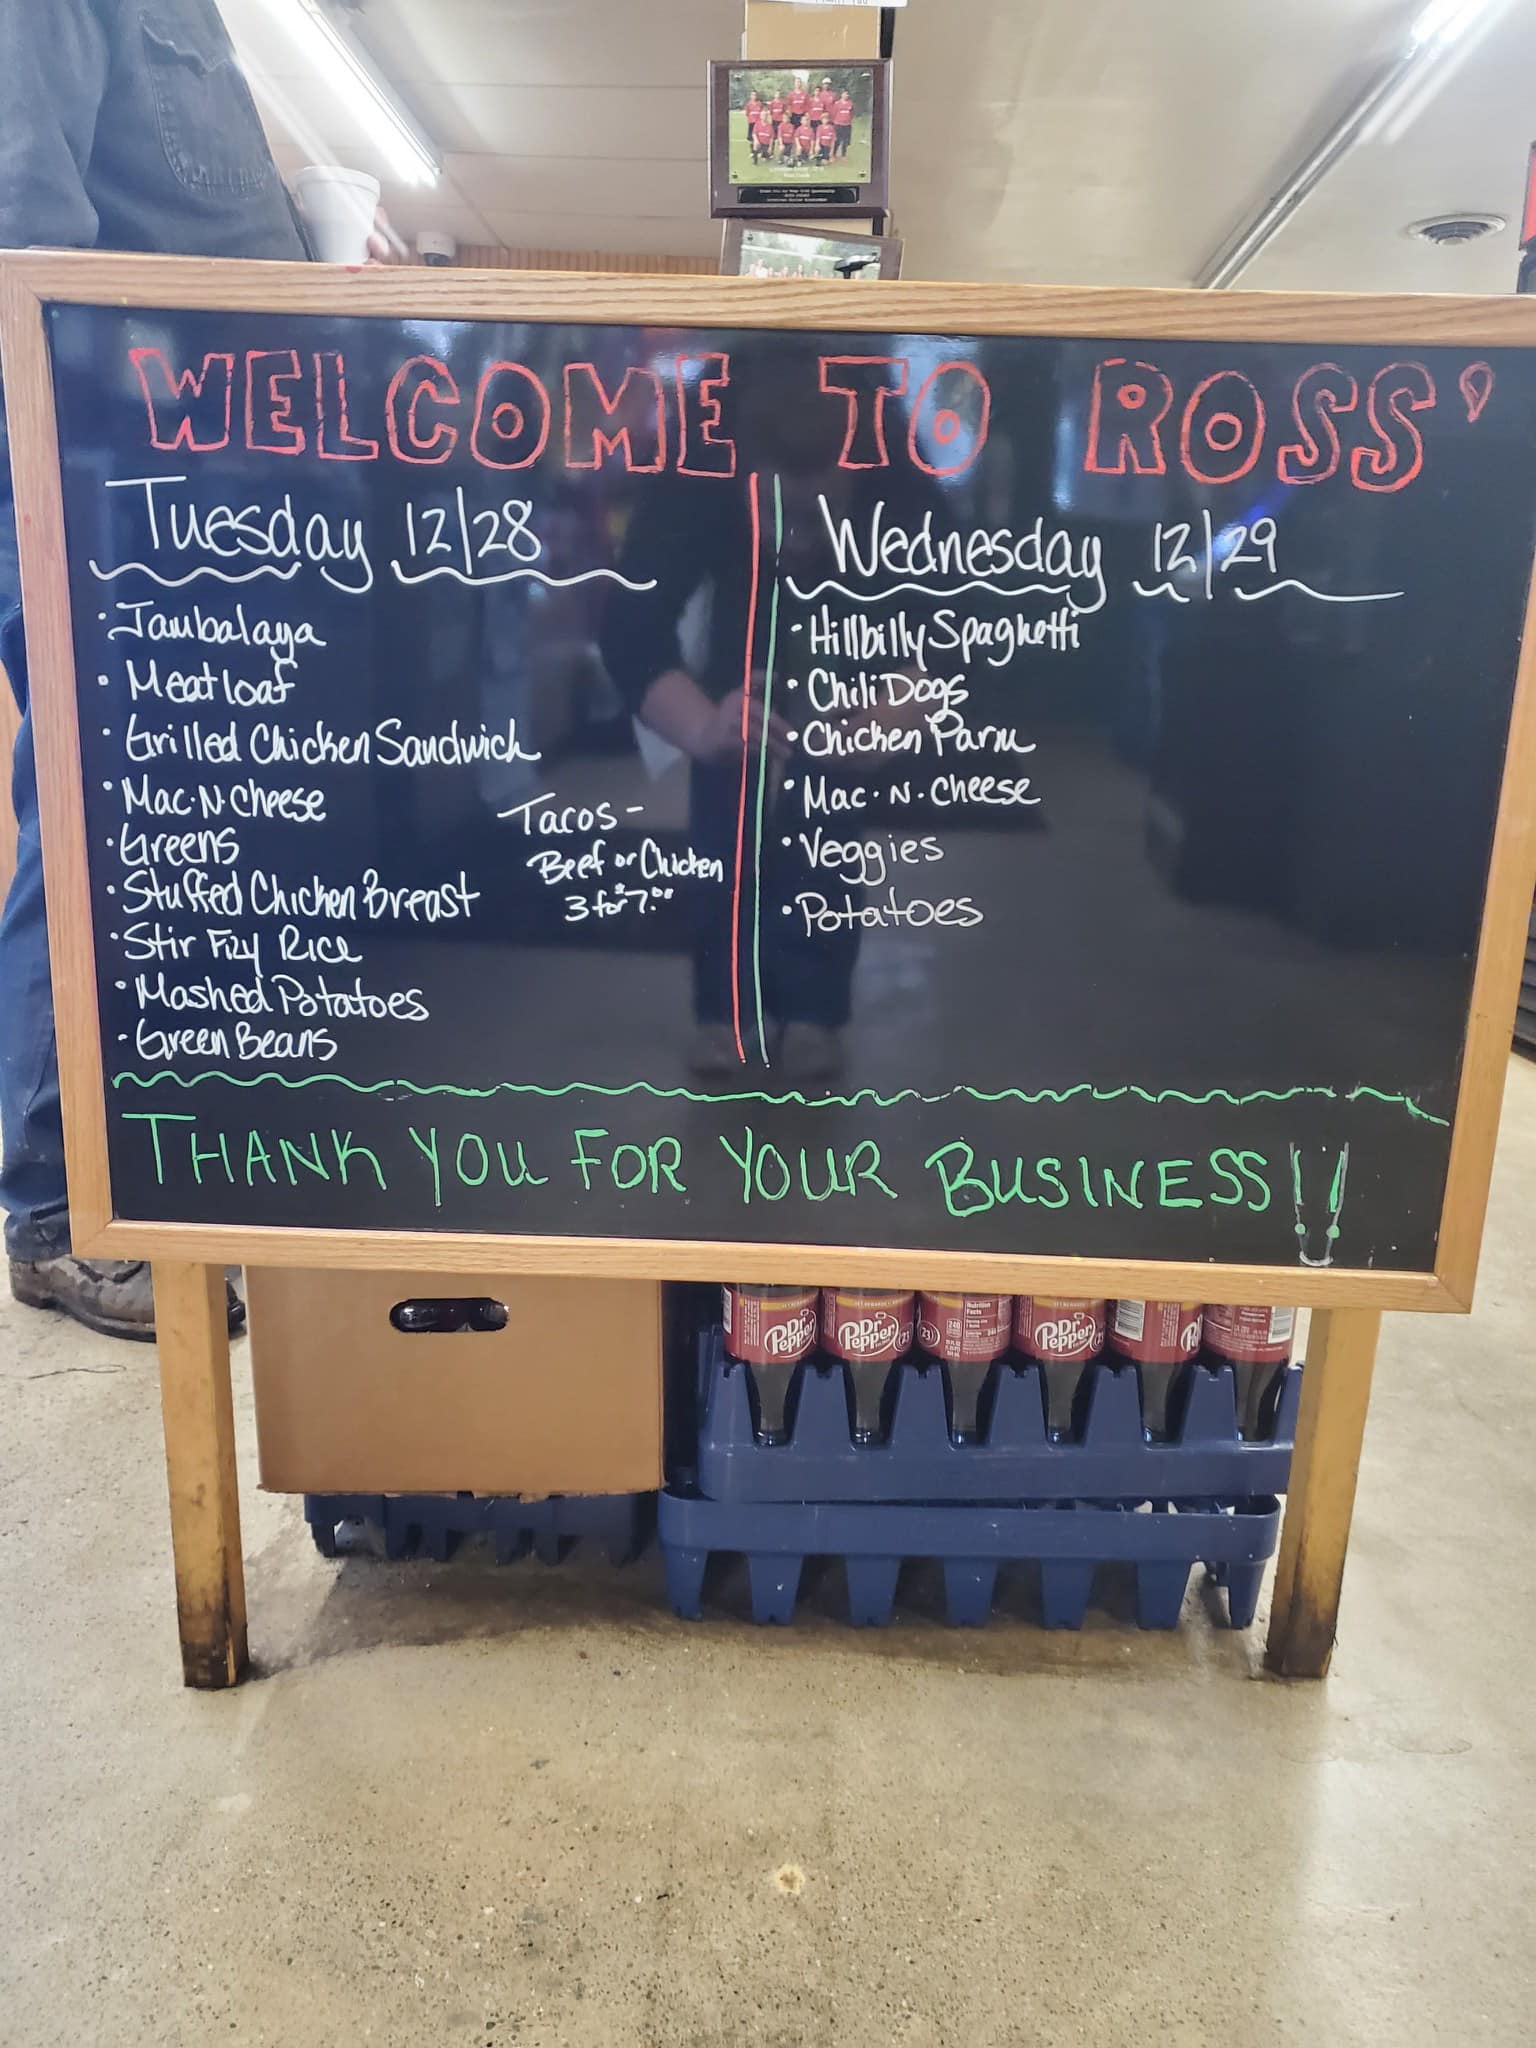 WELCOME TO ROSS'
Tuesday 12/28
• Jambalaya
• Meatloaf
• Grilled Chicken Sandwich
• Mac.N.Cheese
• Greens
• Stuffed Chicken Breast
• Stir Fry Rice
• Mashed Potatoes
• Green Beans
Tacos -
Beef or Chicken
3 for $7.00
Wednesday 12/29
• Hillbilly Spaghetti
• Chili Dogs
• Chicken Parm
• Mac.N.Cheese
• Veggies
• Potatoes
THANK YOU FOR YOUR BUSINESS!!
Dr Pepper
Dr Pepper 23
23 Nutrition Facts 240
Dr Pepper 23